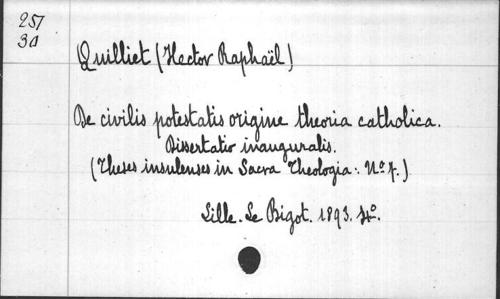 251
30
Quilliet (Hector Raphaël)
De civilis potestatis origine theoria catholica.
Dissertatio inauguralis.
(Theses insulenses in Sacra Theologia: No 7.)
Lille. Le Bigot. 1893. 4o.